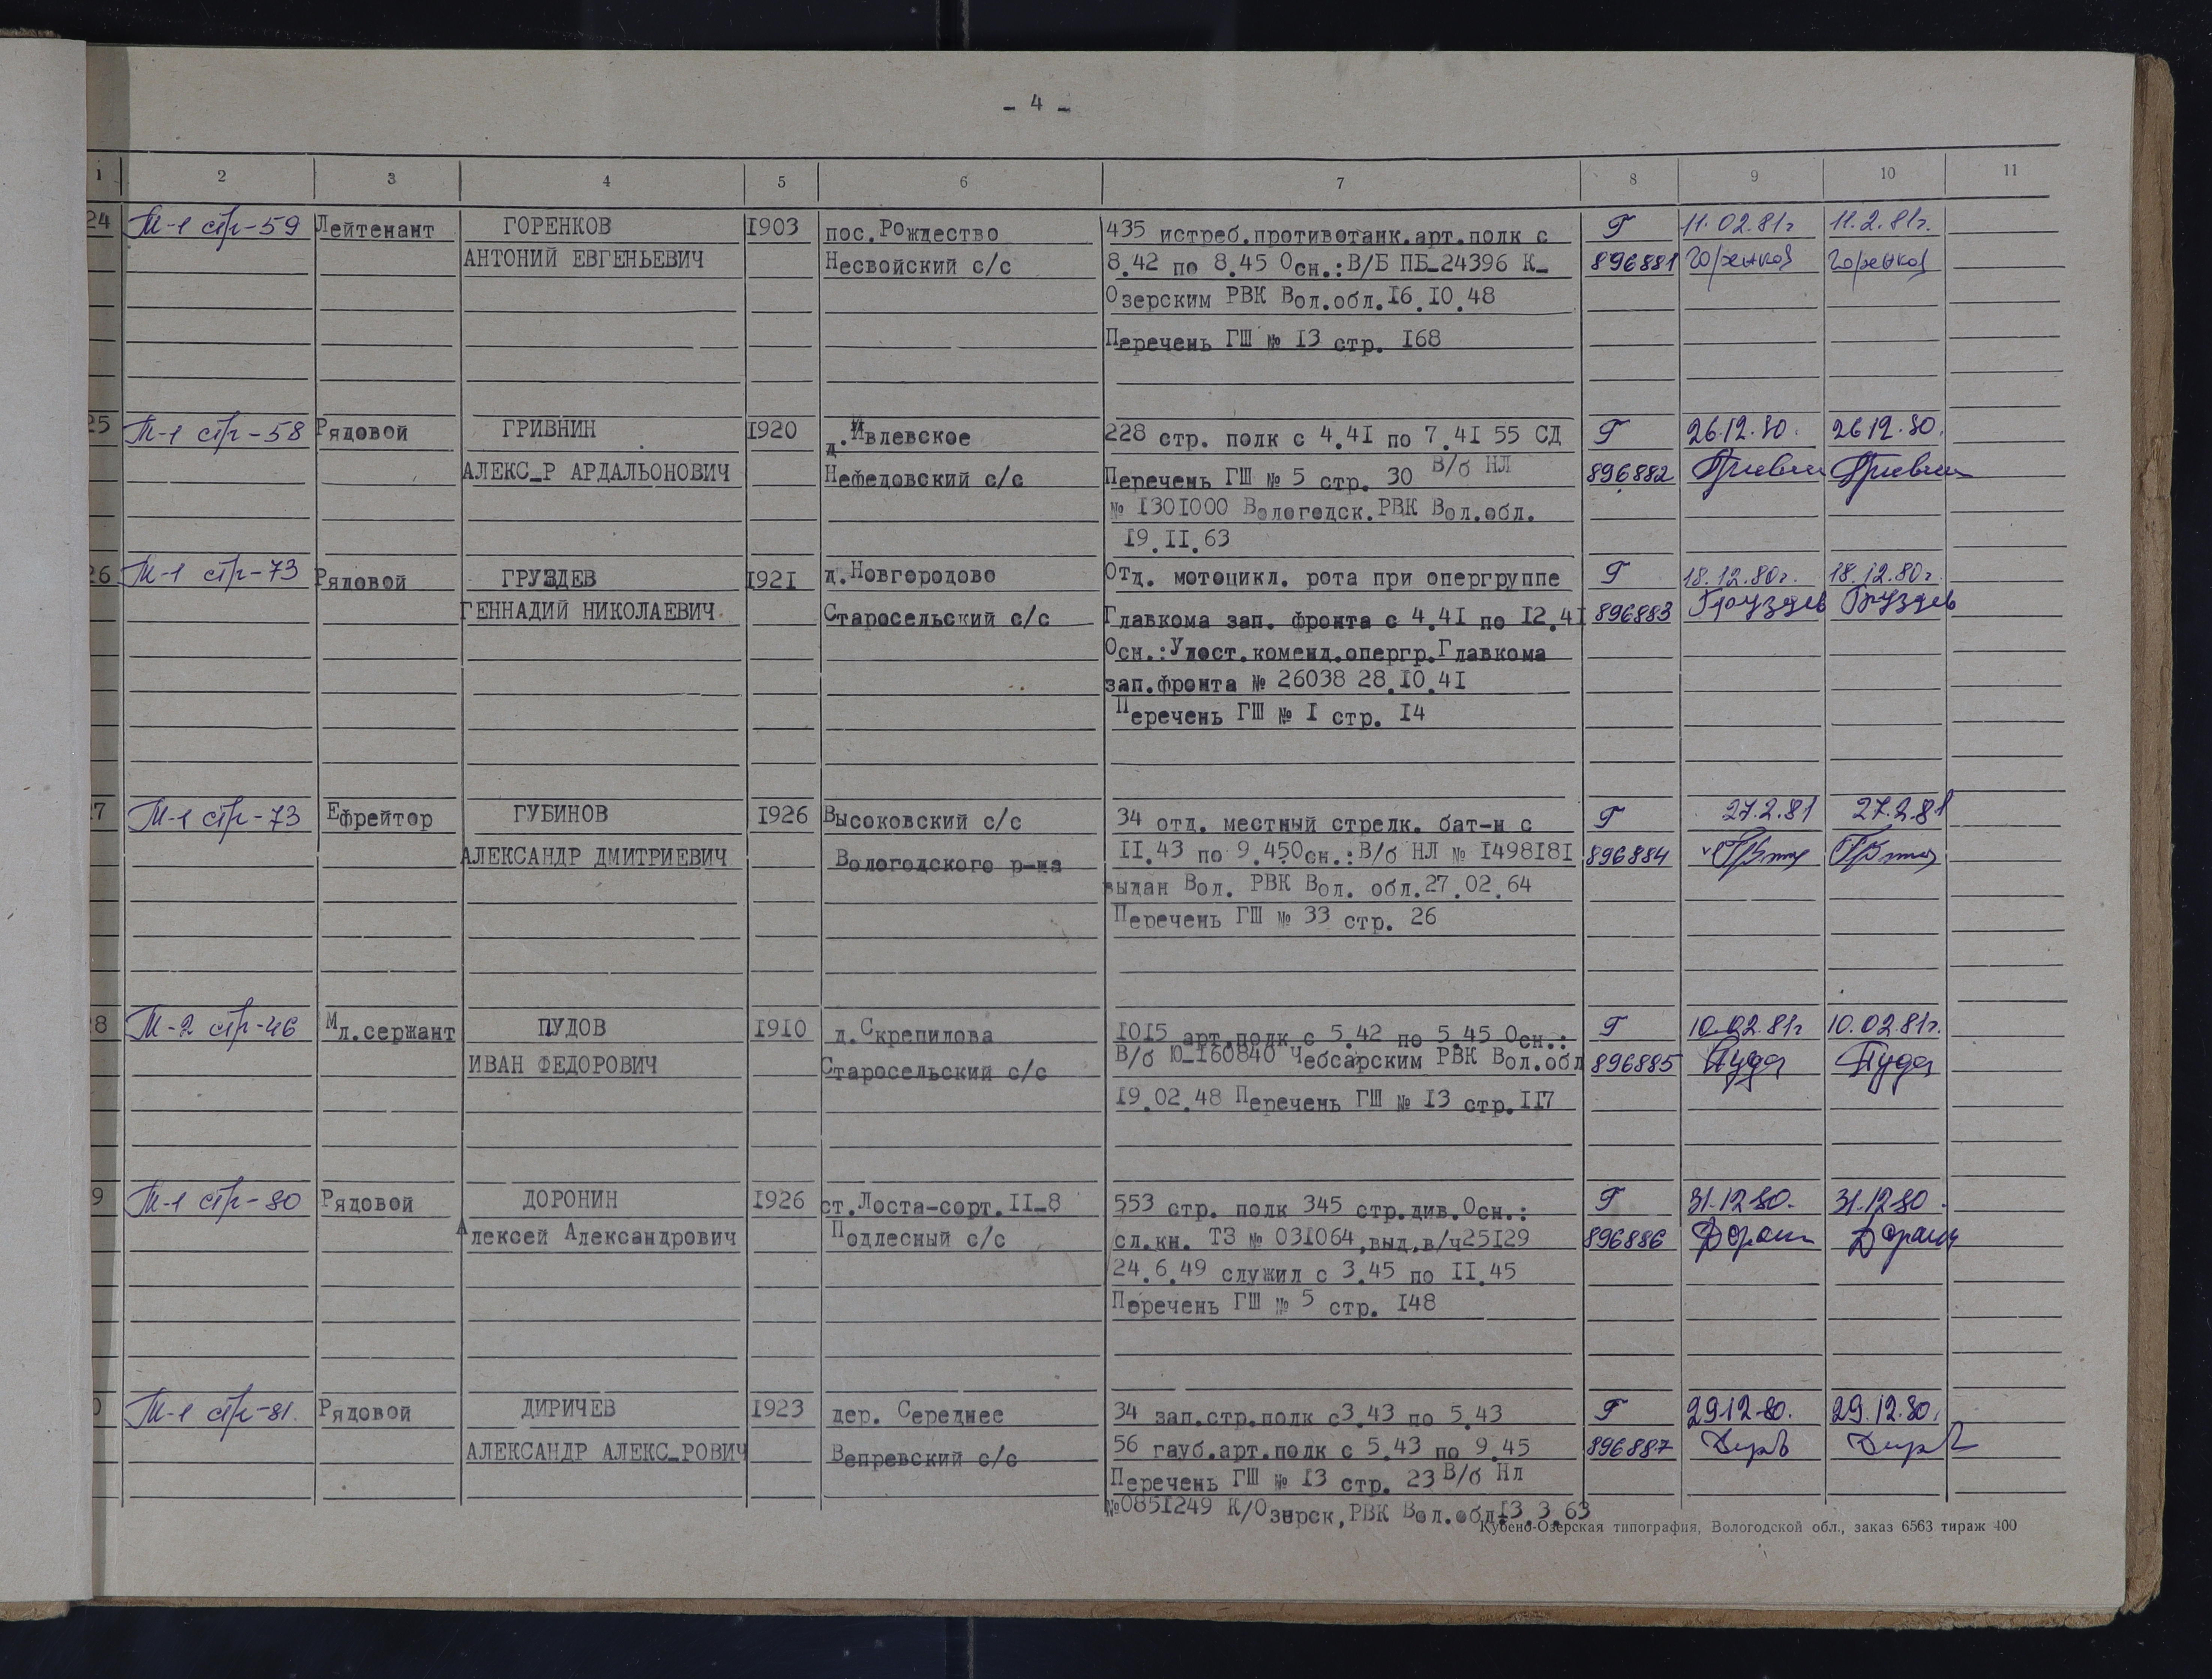 - 4 -
1 2 3 4 5 6 7 8 9 10 11
24 М-1 стр-59 Лейтенант ГОРЕНКОВ 1903 пос.Рождество 435 истреб.противотанк.арт.полк с Г 11.02.81г 11.2.81г.
АНТОНИЙ ЕВГЕНЬЕВИЧ Несвойский с/с 8.42 по 8.45 Осн.:В/Б ПБ-24396 К- 896881 Горенков Горенков
Озерским РВК Вол.обл.16.10.48
Перечень ГШ № 13 стр. 168
25 М-1 стр-58 Рядовой ГРИВНИН 1920 д.Ивлевское 228 стр. полк с 4.41 по 7.41 55 СД Г 26.12.80. 26.12.80.
АЛЕКС-Р АРДАЛЬОНОВИЧ Нефедовский с/с Перечень ГШ № 5 стр. 30 В/б НЛ 896882 Гривнин Гривнин
№ 1301000 Вологодск.РВК Вол.обл.
19.11.63
26 М-1 стр-73 Рядовой ГРУЗДЕВ 1921 д.Новгородово Отд. мотоцикл. рота при опергруппе Г 18.12.80г. 18.12.80г.
ГЕННАДИЙ НИКОЛАЕВИЧ Старосельский с/с Главкома зап. фронта с 4.41 по 12.41 896883 Груздев Груздев
Осн.:Удост.коменд.опергр.Главкома
зап.фронта № 26038 28.10.41
Перечень ГШ № 1 стр. 14
7 М-1 стр-73 Ефрейтор ГУБИНОВ 1926 Высоковский с/с 34 отд. местный стрелк. бат-н с Г 27.2.81 27.2.81
АЛЕКСАНДР ДМИТРИЕВИЧ Вологодского р-на 11.43 по 9.45Осн.:В/б НЛ № 1498181 896884
выдан Вол. РВК Вол. обл.27.02.64
Перечень ГШ № 33 стр. 26
8 М-2 стр-46 Мл.сержант ПУДОВ 1910 д.Скрепилова 1015 арт.полк с 5.42 по 5.45 Осн.: Г 10.02.81г 10.02.81г.
ИВАН ФЕДОРОВИЧ Старосельский с/с В/б Ю-160840 Чебсарским РВК Вол.обл 896885
19.02.48 Перечень ГШ № 13 стр.117
9 М-1 стр-80 Рядовой ДОРОНИН 1926 ст.Лоста-сорт.11-8 553 стр. полк 345 стр.див.Осн.: Г 31.12.80. 31.12.80.
Алексей Александрович Подлесный с/с сл.кн. ТЗ № 031064,выд.в/ч25129 896886
24.6.49 служил с 3.45 по 11.45
Перечень ГШ № 5 стр. 148
0 М-1 стр-81. Рядовой ДИРИЧЕВ 1923 дер. Середнее 34 зап.стр.полк с3.43 по 5.43 Г 29.12.80. 29.12.80.
АЛЕКСАНДР АЛЕКС-РОВИЧ Вепревский с/с 56 гауб.арт.полк с 5.43 по 9.45 896887
Перечень ГШ № 13 стр. 23 В/б Нл
№0851249 К/Озерск,РВК Вол.обл.13.3.63
Кубено-Озерская типография, Вологодской обл., заказ 6563 тираж 400